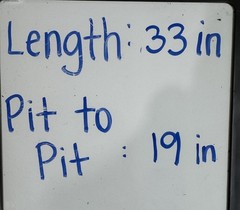 Length: 33 in
Pit to
Pit : 19 in